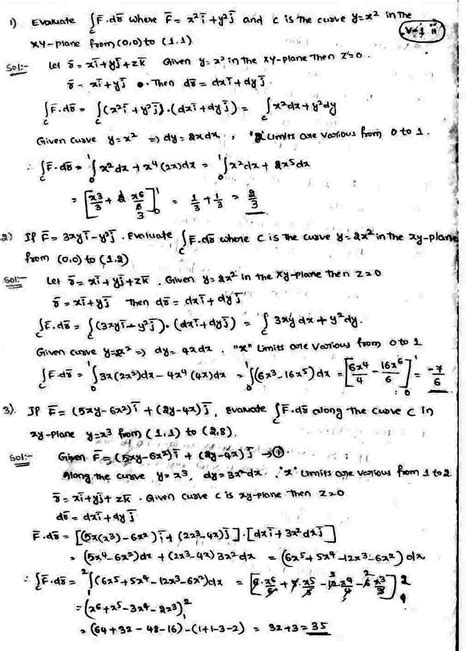 1) Evaluate ∫_C F̄.dr̄ where F̄ = x²ī + y²j̄ and c is the curve y=x² in the
xy-plane from (0,0) to (1,1).
Sol:- Let r̄ = xī + yj̄ + zk̄ Given y=x² in the xy-plane Then z=0.
r̄ = xī + yj̄ . Then dr̄ = dxī + dyj̄
∫_C F̄.dr̄ = ∫_C (x²ī + y²j̄).(dxī + dyj̄) = ∫_C x²dx + y²dy
Given curve y=x² => dy = 2xdx, "x" Limits are various from 0 to 1.
∴ ∫_C F̄.dr̄ = ∫_0^1 x²dx + x⁴(2x)dx = ∫_0^1 x²dx + 2x⁵dx
= [x³/3 + 2 x⁶/6]_0^1 = 1/3 + 1/3 = 2/3
2) If F̄ = 3xyī - y²j̄. Evaluate ∫_C F̄.dr̄ where C is the curve y=2x² in the xy-plane
from (0,0) to (1,2)
Sol:- Let r̄ = xī + yj̄ + zk̄, Given y=2x² in the xy-plane Then z=0
r̄ = xī + yj̄ Then dr̄ = dxī + dyj̄
∫_C F̄.dr̄ = ∫_C (3xyī - y²j̄).(dxī + dyj̄) = ∫_C 3xy dx + y²dy.
Given curve y=2x² => dy = 4xdx, "x" Limits are various from 0 to 1
∫_C F̄.dr̄ = ∫_0^1 3x(2x²)dx - 4x⁴(4x)dx = ∫_0^1 (6x³-16x⁵)dx = [6x⁴/4 - 16x⁶/6]_0^1 = -7/6
3). If F̄ = (5xy-6x²)ī + (2y-4x)j̄, evaluate ∫_C F̄.dr̄ along the curve C in
xy-plane y=x³ from (1,1) to (2,8).
Sol:- Given F̄ = (5xy-6x²)ī + (2y-4x)j̄ →①
Along the curve y=x³, dy=3x²dx. "x" Limits are various from 1 to 2
r̄ = xī + yj̄ + zk̄. Given curve c is xy-plane Then z=0
dr̄ = dxī + dyj̄
F̄.dr̄ = [(5x(x³)-6x²)ī + (2x³-4x)j̄].[dxī + 3x²dxj̄]
= (5x⁴-6x²)dx + (2x³-4x)3x²dx = (6x⁵+5x⁴-12x³-6x²)dx
∴ ∫_C F̄.dr̄ = ∫_1^2 (6x⁵+5x⁴-12x³-6x²)dx = [6 x⁶/6 + 5 x⁵/5 - 12 x⁴/4 - 6 x³/3]_1^2
= (x⁶+x⁵-3x⁴-2x³)_1^2
= (64+32-48-16)-(1+1-3-2) = 32+3 = 35